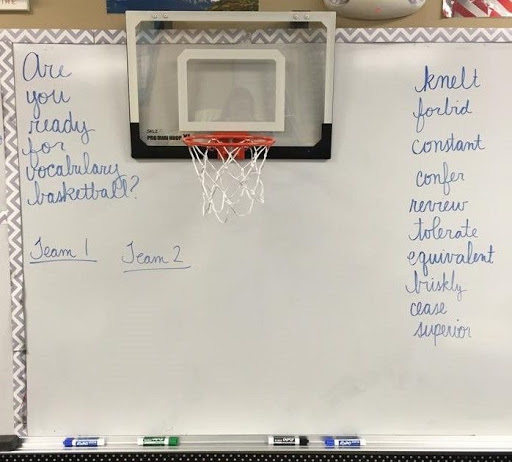 Are
you
ready
for
vocabulary
basketball?
Team 1 Team 2
SKLZ
PRO MINI HOOP XL
knelt
forbid
constant
confer
review
tolerate
equivalent
briskly
cease
superior